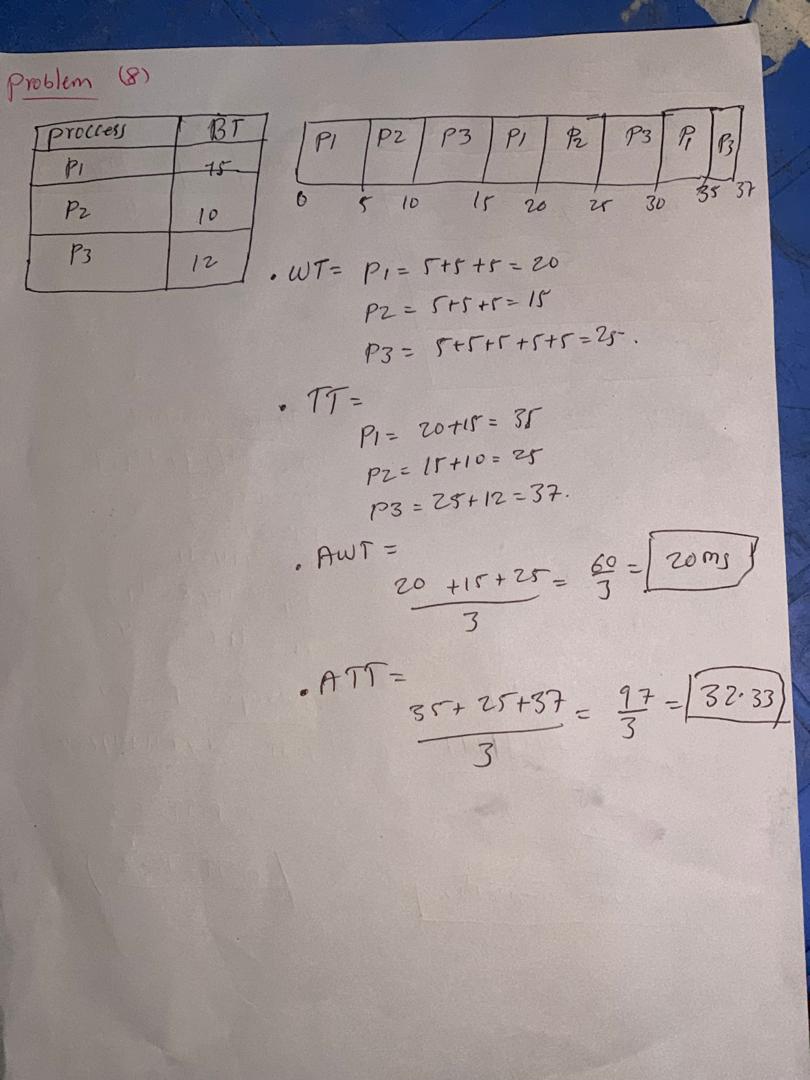 Problem (8)
proccess BT
P1 15
P2 10
P3 12
P1 P2 P3 P1 P2 P3 P1 P3
0 5 10 15 20 25 30 35 37
• WT= P1 = 5+5+5 = 20
P2 = 5+5+5 = 15
P3 = 5+5+5+5+5 = 25.
• TT=
P1 = 20+15 = 35
P2 = 15+10 = 25
P3 = 25+12 = 37.
• AWT =
20 +15+25 / 3 = 60/3 = 20 ms
• ATT =
35+ 25+37 / 3 = 97/3 = 32.33